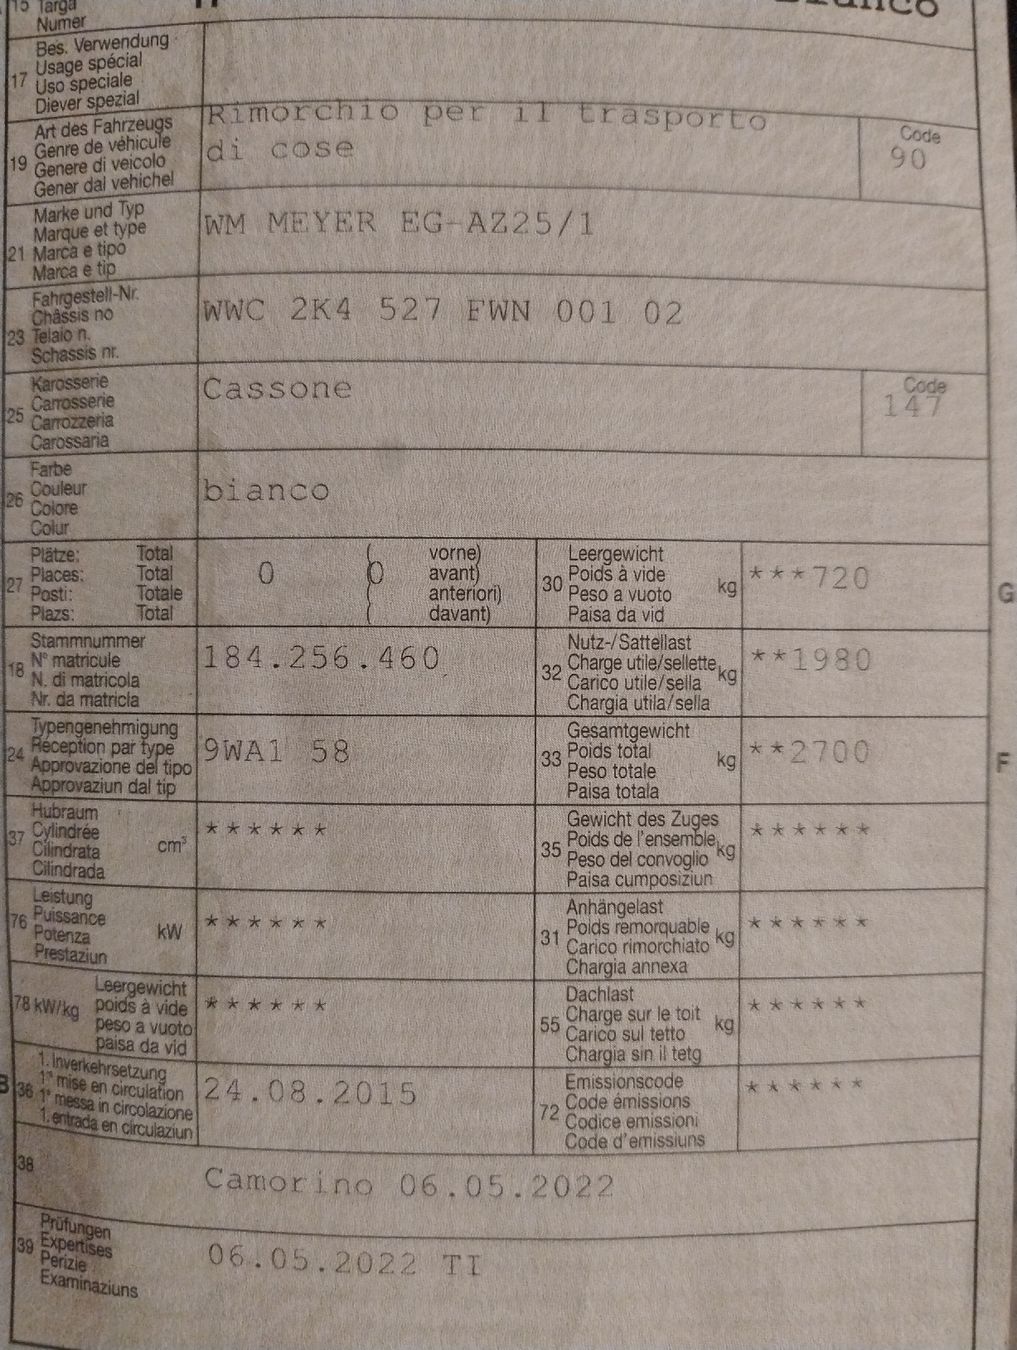 15 Targa
Numer
Bes. Verwendung
17 Usage spécial
Uso speciale
Diever spezial
Art des Fahrzeugs
19 Genre de véhicule
Genere di veicolo
Gener dal vehichel
Rimorchio per il trasporto
di cose
Code
90
Marke und Typ
Marque et type
21 Marca e tipo
Marca e tip
WM MEYER EG-AZ25/1
Fahrgestell-Nr.
Châssis no
23 Telaio n.
Schassis nr.
WWC 2K4 527 FWN 001 02
Karosserie
Carrosserie
25 Carrozzeria
Carossaria
Cassone
Code
147
Farbe
26 Couleur
Colore
Colur
bianco
Plätze: Total
27 Places: Total
Posti: Totale
Plazs: Total
0 ( 0 vorne)
( avant)
( anteriori)
( davant)
Leergewicht
30 Poids à vide kg
Peso a vuoto
Paisa da vid
***720
G
Stammnummer
18 N° matricule
N. di matricola
Nr. da matricla
184.256.460
Nutz-/Sattellast
32 Charge utile/sellette kg
Carico utile/sella
Chargia utila/sella
**1980
Typengenehmigung
24 Réception par type
Approvazione del tipo
Approvaziun dal tip
9WA1 58
Gesamtgewicht
33 Poids total kg
Peso totale
Paisa totala
**2700
F
Hubraum
37 Cylindrée
Cilindrata cm³
Cilindrada
******
Gewicht des Zuges
35 Poids de l'ensemble kg
Peso del convoglio
Paisa cumposiziun
******
Leistung
76 Puissance
Potenza kW
Prestaziun
******
Anhängelast
31 Poids remorquable kg
Carico rimorchiato
Chargia annexa
******
Leergewicht
78 kW/kg poids à vide
peso a vuoto
paisa da vid
******
Dachlast
55 Charge sur le toit kg
Carico sul tetto
Chargia sin il tetg
******
1. Inverkehrsetzung
B 36 1re mise en circulation
1a messa in circolazione
1. entrada en circulaziun
24.08.2015
Emissionscode
72 Code émissions
Codice emissioni
Code d'emissiuns
******
38
Camorino 06.05.2022
Prüfungen
39 Expertises
Perizie
Examinaziuns
06.05.2022 TI